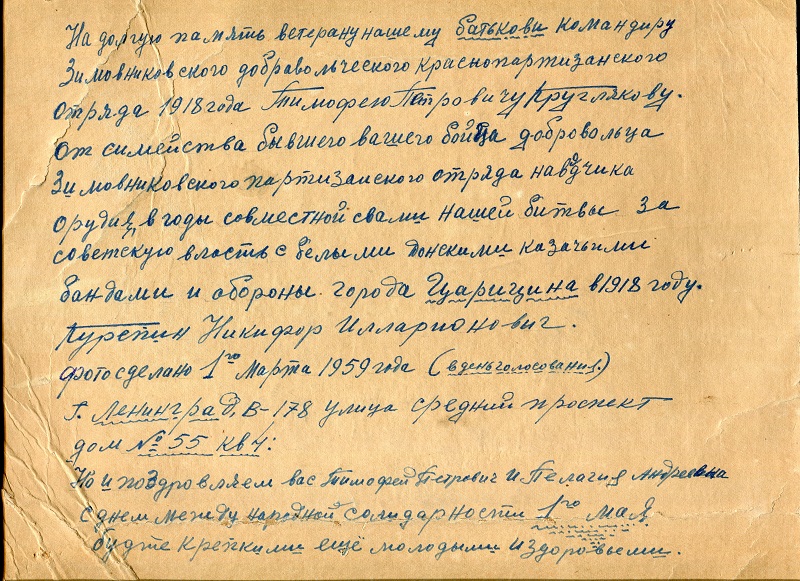 На долгую память ветерану нашему батькови командиру
Зимовниковского добравольческого краснопартизанского
отряда 1918 года Тимофею Петровичу Круглякову.
от симейства бывшего вашего бойца добровольца
Зимовниковского партизанского отряда наводчика
орудия, в годы совместной свами нашей битвы за
советскую власть с белыми Донскими казачьими
бандами и обороны города Царицина в 1918 году.
Курепин Никифор Илларионович.
фото сделано 1го Марта 1959 года (в день голосования.)
г. Ленинград. В-178 улица средний проспект
дом № 55 кв 4:
Но и поздровляем вас Тимофей Петрович и Пелагия Андреевна
с днем между народной солидарности 1го мая
будте крепкими ещё молодыми и здоровьеми.